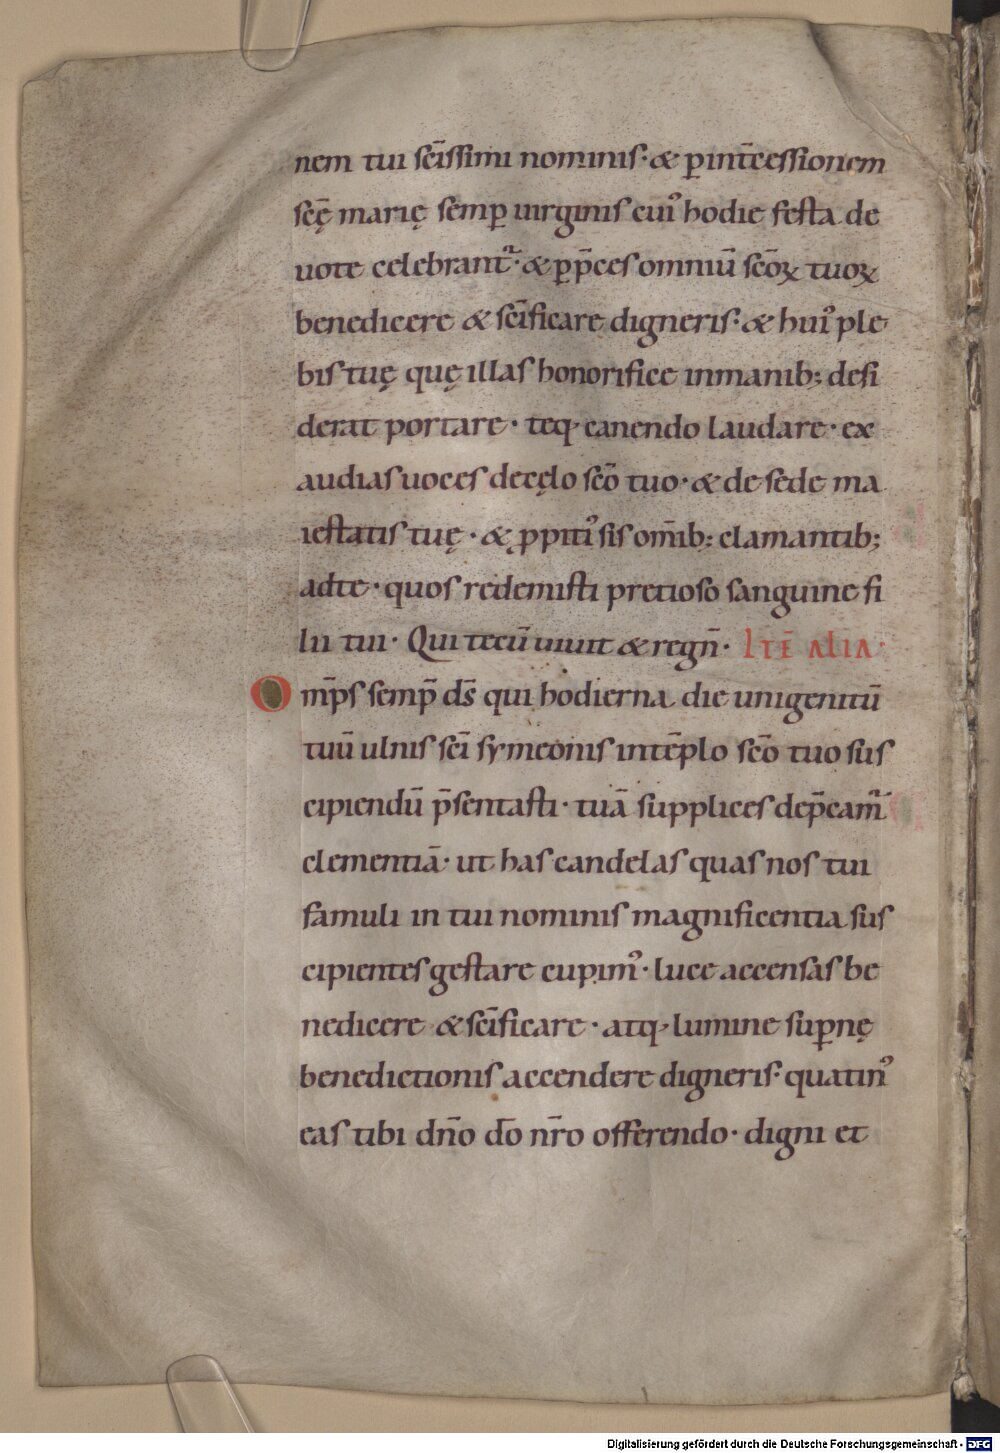 nem tui sc̄issimi nominis· & ꝑ int̄cessionem
sc̄ę marię semꝑ uirginis cuiꝰ hodie festa de
uote celebrant᷑· & ꝑ p̄ces omniū sc̄oꝝ tuoꝝ
benedicere & sc̄ificare digneris· & huiꝰ ple
bis tuę quę illas honorifice in manib; desi
derat portare· teq· canendo laudare· ex
audias uoces de cęlo sc̄o tuo· & de sede ma
iestatis tuę· & ꝓpitiꝰ sis om̄ib; clamantib;
ad te· quos redemisti pretioso sanguine fi
lii tui· Qui tecū uiuit & regn̄· ITĒ ALIA·
Om̄ps semp̄ ds̄ qui hodierna die unigenitū
tuū ulnis sc̄i symeonis in tēplo sc̄o tuo sus
cipiendū p̄sentasti· tuā supplices dep̄cam᷑
clementiā· ut has candelas quas nos tui
famuli in tui nominis magnificentia sus
cipientes gestare cupimꝰ· luce accensas be
nedicere & sc̄ificare· atq· lumine suꝑnę
benedictionis accendere digneris· quatinꝰ
eas tibi dn̄o dō nr̄o offerendo· digni et
Digitalisierung gefördert durch die Deutsche Forschungsgemeinschaft - DFG